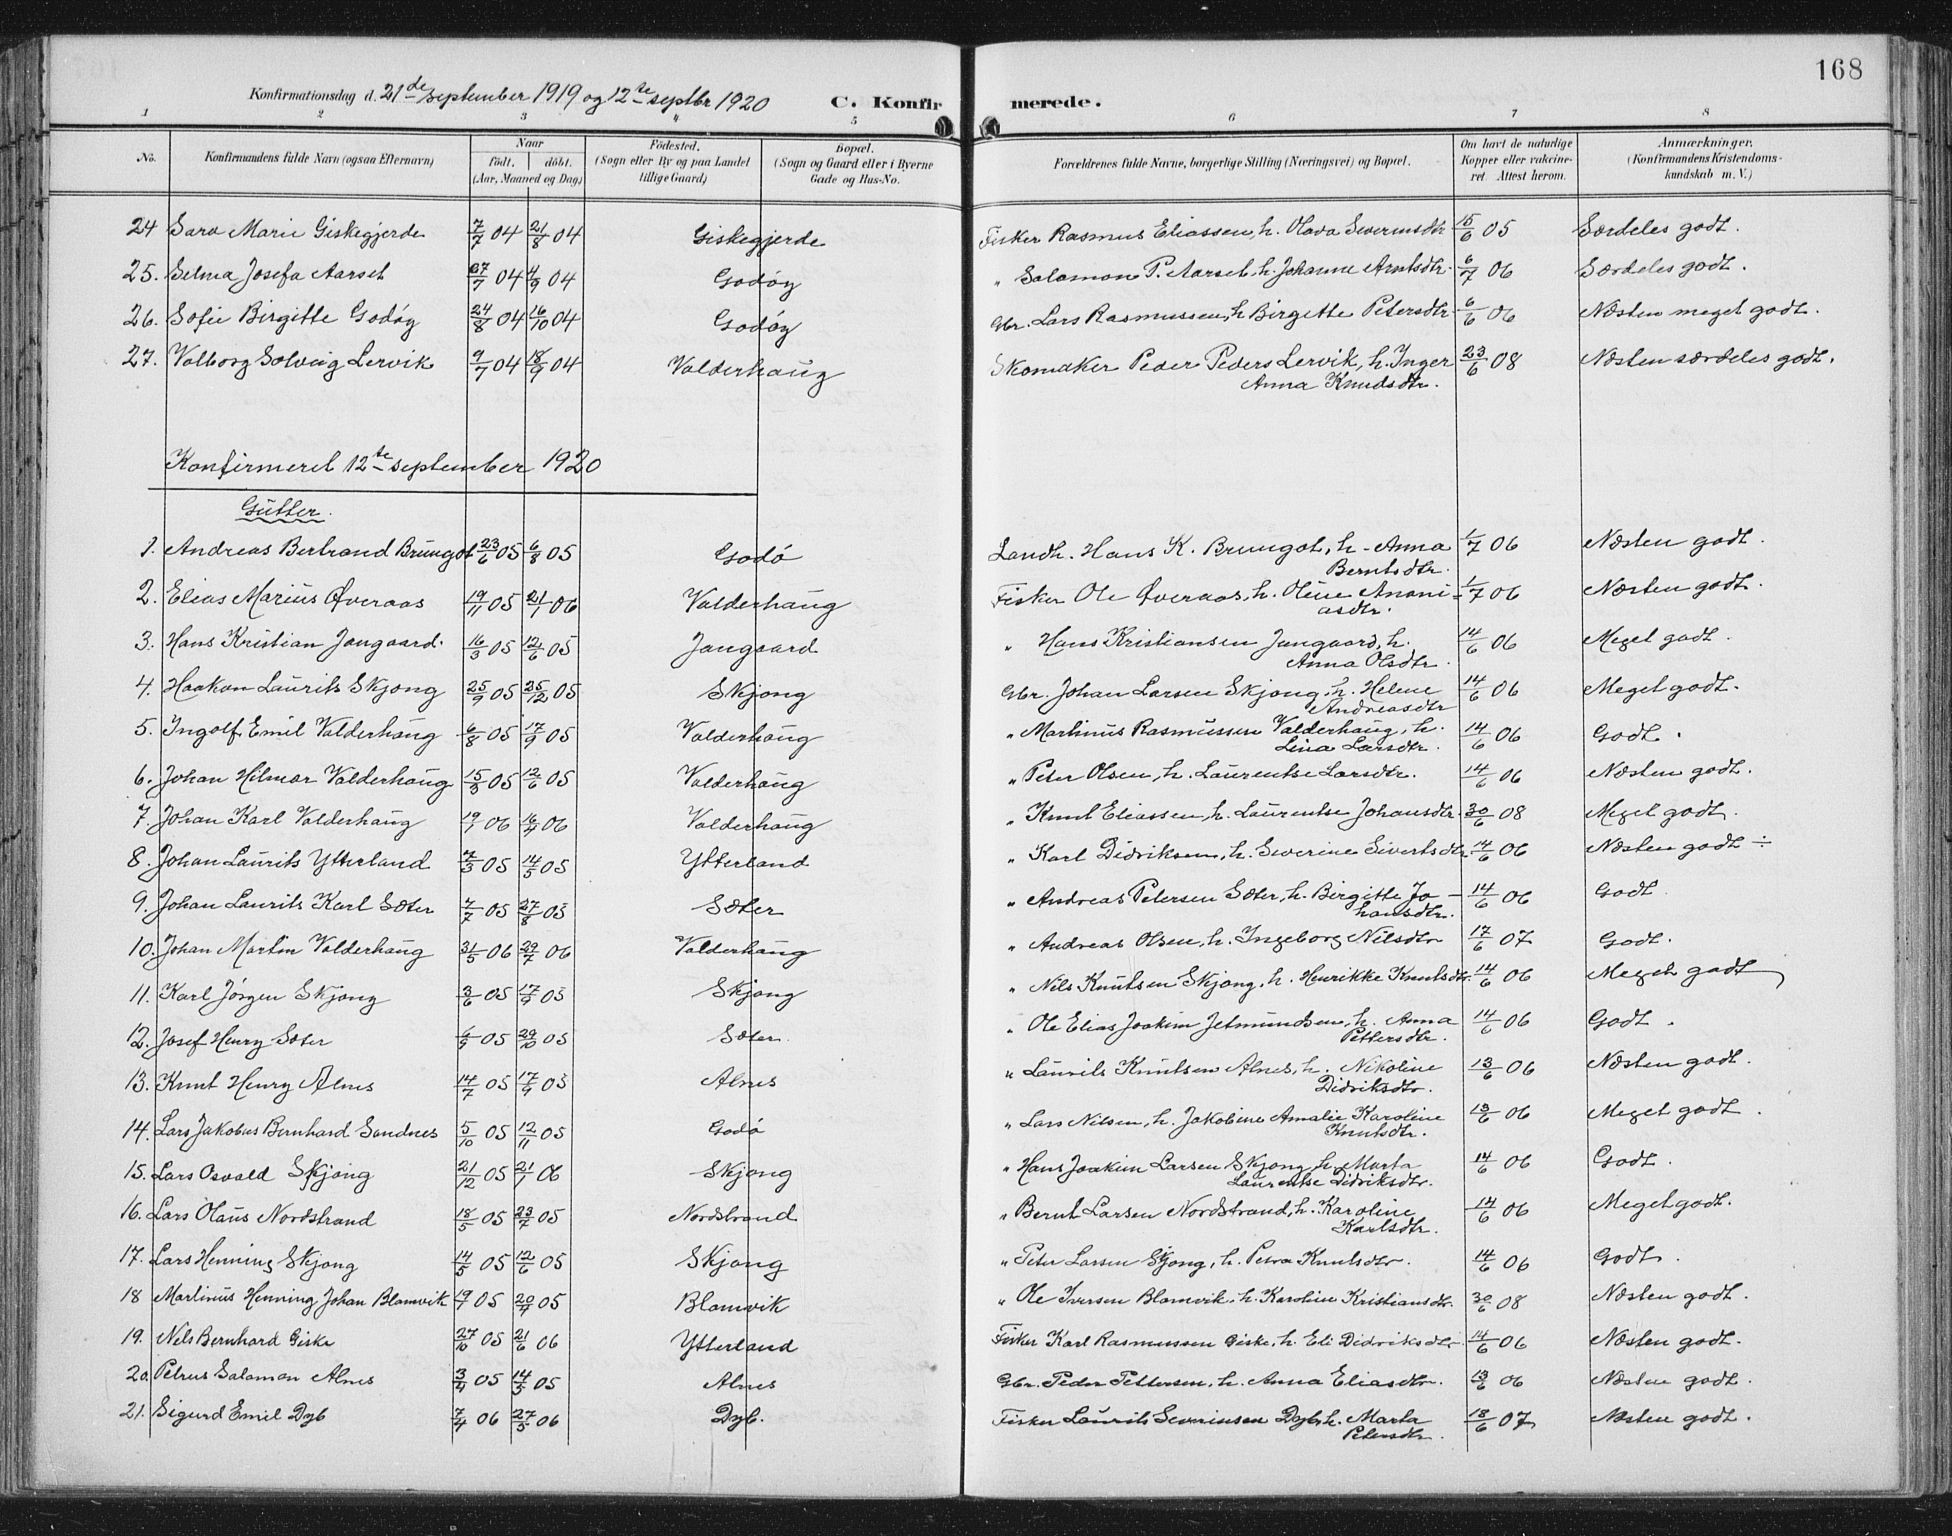 168
Konfirmationsdag d. 21de september 1919 og 12te septbr 1920 C. Konfirmerede.
1 2 3 4 5 6 7 8
No. Konfirmandens fulde Navn (ogsaa Efternavn) Naar födt. döbt. (Aar, Maaned og Dag) Födested. (Sogn eller By og paa Landet tillige Gaard) Bopæl. (Sogn og Gaard eller i Byerne Gade og Hus-No. Forældrenes fulde Navne, borgerlige Stilling (Næringsvei) og Bopæl. Om havt de naturlige Kopper eller vakcineret. Attest herom. Anmærkninger. (Konfirmandens Kristendomskundskab m. V.)
24 Sara Marie Giskegjerde 7/7 04 21/8 04 Giskegjerde Fisker Rasmus Eliassen, h. Olava Severinsdtr 15/6 05 Særdeles godt.
25. Selma Josefa Aarset 27/7 04 4/9 04 Godøy " Salomon P. Aarset, h. Johanne Arntsdtr. 6/7 06 Særdeles godt.
26. Sofie Birgitte Godøy 24/8 04 16/10 04 Godøy Gbr. Lars Rasmussen, h Birgitte Petersdtr 6/6 06 Næsten meget godt.
27. Valborg Solveig Lervik 9/7 04 18/9 04 Valderhaug Skomaker Peder Peders Lervik, h. Inger 23/6 08 Næsten særdeles godt.
Anna Knudsdtr.
Konfirmeret 12te september 1920
Gutter.
1. Andreas Bertrand Brungot 23/6 05 6/8 05 Godø Landh. Hans K. Brungot, h - Anna 1/7 06 Næsten godt.
Berntsdtr.
2. Elias Marius Øveraas 19/11 05 21/1 06 Valderhaug Fisker Ole Øveraas, h. Oline Anani- 1/7 06 Næsten godt.
asdtr.
3. Hans Kristian Jangaard. 16/3 05 12/6 05 Jangaard " Hans Kristiansen Jangaard, h. 14/6 06 Meget godt.
Anna Olsdtr.
4. Haakon Laurits Skjong 25/9 05 25/12 05 Skjong Gbr. Johan Larsen Skjong, h. Helene 14/6 06 Meget godt.
Andreasdtr
5. Ingolf Emil Valderhaug 6/8 05 17/9 05 Valderhaug " Martinus Rasmussen Valderhaug, h. 14/6 06 Godt.
Lina Larsdtr.
6. Johan Hilmar Valderhaug 15/3 05 12/6 05 Valderhaug " Peter Olsen, h. Laurentse Larsdtr. 14/6 06 Næsten godt.
7. Johan Karl Valderhaug 19/1 06 16/4 06 Valderhaug " Knut Eliassen, h. Laurentse Johansdtr. 30/6 08 Meget godt.
8. Johan Laurits Ytterland 7/3 05 14/5 05 Ytterland " Karl Didriksen, h. Severine Sivertsdtr. 14/6 06 Næsten godt ÷
9. Johan Laurits Karl Sæter 7/7 05 27/8 05 Sæter " Andreas Petersen Sæter, h. Birgitte Jo- 14/6 06 Godt
hansdtr.
10. Johan Martin Valderhaug 31/5 06 29/7 06 Valderhaug " Andreas Olsen, h. Ingeborg Nilsdtr 17/6 07 Godt.
11. Karl Jørgen Skjong 3/6 05 17/9 05 Skjong " Nils Knutsen Skjong, h. Henrikke Knutsdtr. 14/6 06 Meget godt
12. Josef Henry Sæter 6/9 05 29/10 05 Sæter. " Ole Elias Joakim Jetmundsen, h. Anna 14/6 06 Godt.
Pettersdtr.
13. Knut Henry Alnes 14/7 05 17/9 05 Alnes " Laurits Knutsen Alnes, h. Nikoline 13/6 06 Næsten godt.
Didriksdtr.
14. Lars Jakobus Bernhard Sandnes 5/10 05 12/11 05 Godø " Lars Nilsen, h. Jakobine Amalie Karoline 13/6 06 Meget godt.
Knutsdtr.
15. Lars Osvald Skjong 21/12 05 21/1 06 Skjong " Hans Joakim Larsen Skjong, h. Marta 14/6 06 Godt.
Laurentse Didriksdtr.
16. Lars Olaus Nordstrand 18/5 05 23/7 05 Nordstrand " Bernt Larsen Nordstrand, h. Karoline 14/6 06 Meget godt.
Karlsdtr.
17. Lars Henning Skjong 14/5 05 12/6 05 Skjong " Peter Larsen Skjong, h. Petra Knutsdtr. 14/6 06 Godt.
18 Martinus Henning Johan Blomvik 19/7 05 05 Blomvik " Ole Iversen Blomvik, h. Karoline Kristiansdtr. 30/6 08 Næsten godt.
19. Nils Bernhard Giske 27/10 05 21/6 06 Ytterland Fisker Karl Rasmussen Giske, h. Eli Didriksdtr. 14/6 06 Næsten godt.
20. Petrus Salomon Alnes 3/4 05 14/5 05 Alnes Gbr. Peder Pettersen, h. Anna Eliasdtr. 13/6 06 Næsten godt.
21. Sigurd Emil Dyb 7/4 06 27/5 06 Dyb. Fisker Laurits Severinsen Dyb, h. Marta 18/6 07 Næsten godt.
Petersdtr.